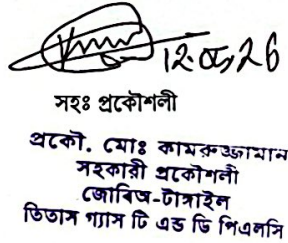 12.05.26
সহঃ প্রকৌশলী
প্রকৌ. মোঃ কামরুজ্জামান
সহকারী প্রকৌশলী
জোবিঅ-টাঙ্গাইল
তিতাস গ্যাস টি এন্ড ডি পিএলসি